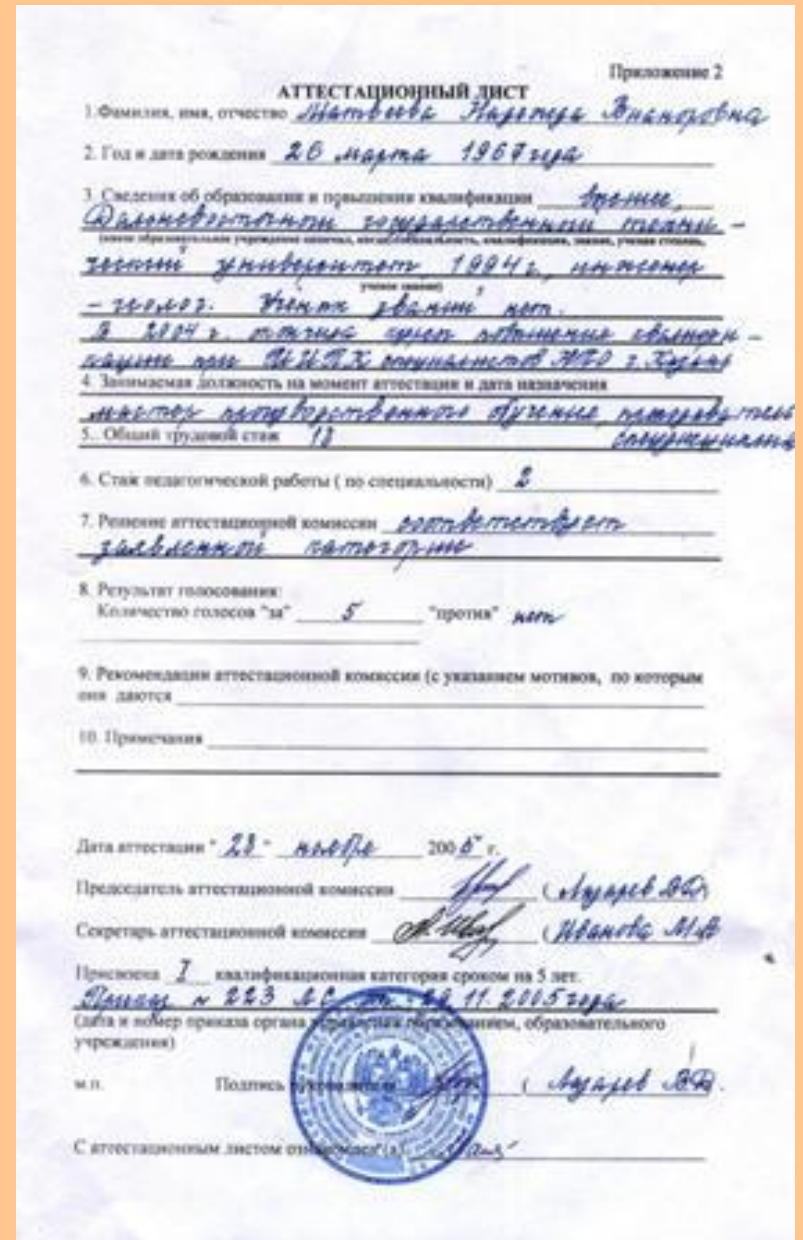 Приложение 2
АТТЕСТАЦИОННЫЙ ЛИСТ
1.Фамилия, имя, отчество Матвеева Надежда Викторовна
2. Год и дата рождения 26 марта 1967 года
3. Сведения об образовании и повышении квалификации высшее,
Дальневосточный государственный техни-
(какое образовательное учреждение окончил, когда, специальность, квалификация, звания, ученая степень,
ческий университет 1994 г, инженер
ученое звание)
- геолог. Ученых званий нет.
В 2004 г. курсы повышения квалифи-
кации при ИПК специалистов г.
4. Занимаемая должность на момент аттестации и дата назначения
мастер производственного обучения, преподаватель
5.. Общий трудовой стаж 18 спецдисциплин
6. Стаж педагогической работы ( по специальности) 2
7. Решение аттестационной комиссии соответствует
заявленной категории
8. Результат голосования:
Количество голосов "за" 5 "против" нет
9. Рекомендации аттестационной комиссии (с указанием мотивов, по которым
они даются
10. Примечания
Дата аттестации " 28 " ноября 2005 г.
Председатель аттестационной комиссии ( Лазарев В.Д.
Секретарь аттестационной комиссии ( Иванова М.А
Присвоена I квалификационная категория сроком на 5 лет.
Приказ № 223 ЛС от 29.11.2005 года
(дата и номер приказа органа управления образованием, образовательного
учреждения)
м.п. Подпись руководителя ( Лазарев В.Д.
С аттестационным листом ознакомлен(а)